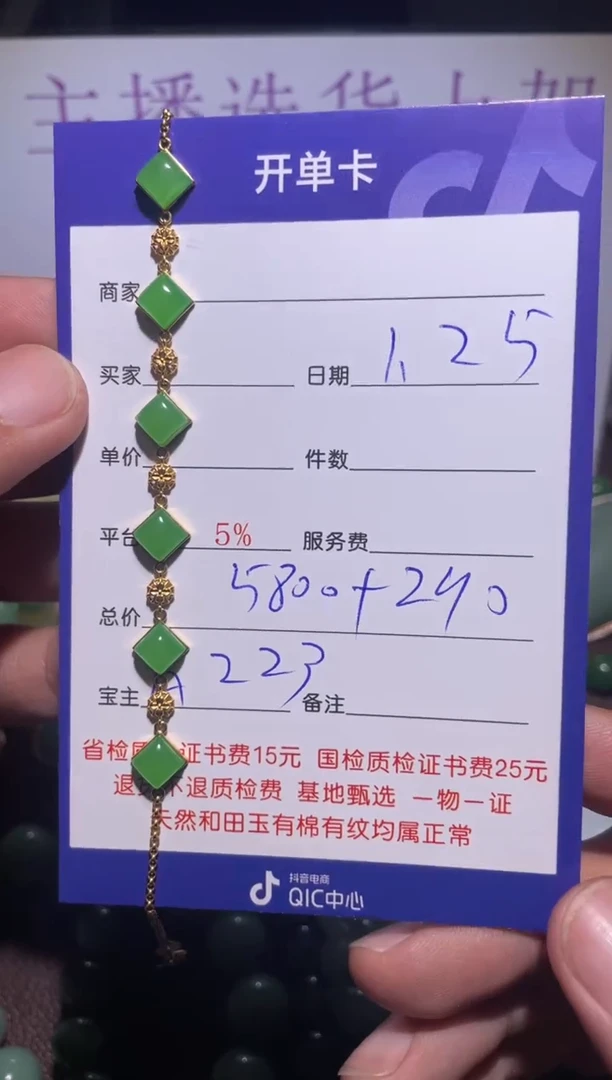 主播选货上架
开单卡
商家
买家 日期 1.25
单价 件数
平台 5% 服务费
总价 5800+240
宝主 223 备注
省检质 证书费15元 国检质检证书费25元
退 不退质检费 基地甄选 一物一证
天然和田玉有棉有纹均属正常
抖音电商
QIC中心